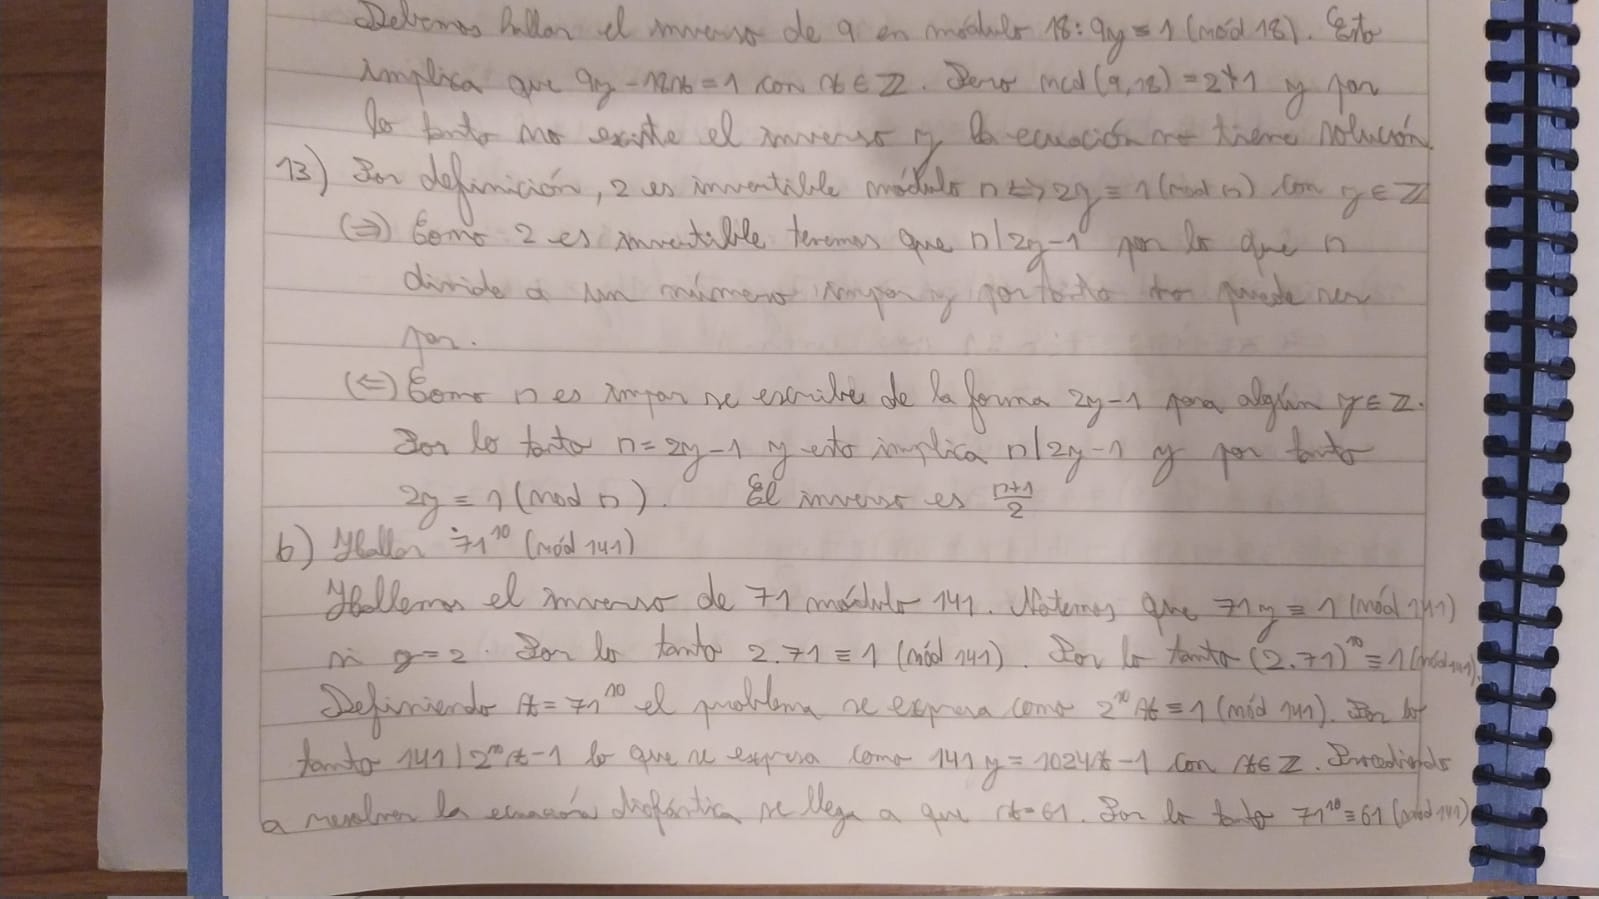 Debemos hallar el inverso de 9 en módulo 18: 9y ≡ 1 (mód 18). Esto
implica que 9y - 18t = 1 con t ∈ Z. Pero mcd (9,18) = 2 ≠ 1 y por
lo tanto no existe el inverso y la ecuación no tiene solución.
13) Por definición, 2 es invertible módulo n ⟺ 2y ≡ 1 (mod n) con y ∈ Z
(⇒) Como 2 es invertible tenemos que n | 2y-1 por lo que n
divide a un número impar y por tanto no puede ser
par.
(⇐) Como n es impar se escribe de la forma 2y-1 para algún y ∈ Z.
Por lo tanto n = 2y-1 y esto implica n | 2y-1 y por tanto
2y ≡ 1 (mod n). El inverso es (n+1)/2
b) Hallar 71¹⁰ (mód 141)
Hallemos el inverso de 71 módulo 141. Notemos que 71y ≡ 1 (mód 141)
si y = 2. Por lo tanto 2.71 ≡ 1 (mód 141). Por lo tanto (2.71)¹⁰ ≡ 1 (mód 141).
Definiendo t = 71¹⁰ el problema se expresa como 2¹⁰t ≡ 1 (mód 141). Por lo
tanto 141 | 2¹⁰t - 1 lo que se expresa como 141y = 1024t - 1 con t ∈ Z. Procediendo
a resolver la ecuación diofántica se llega a que t = 61. Por lo tanto 71¹⁰ ≡ 61 (mód 141)